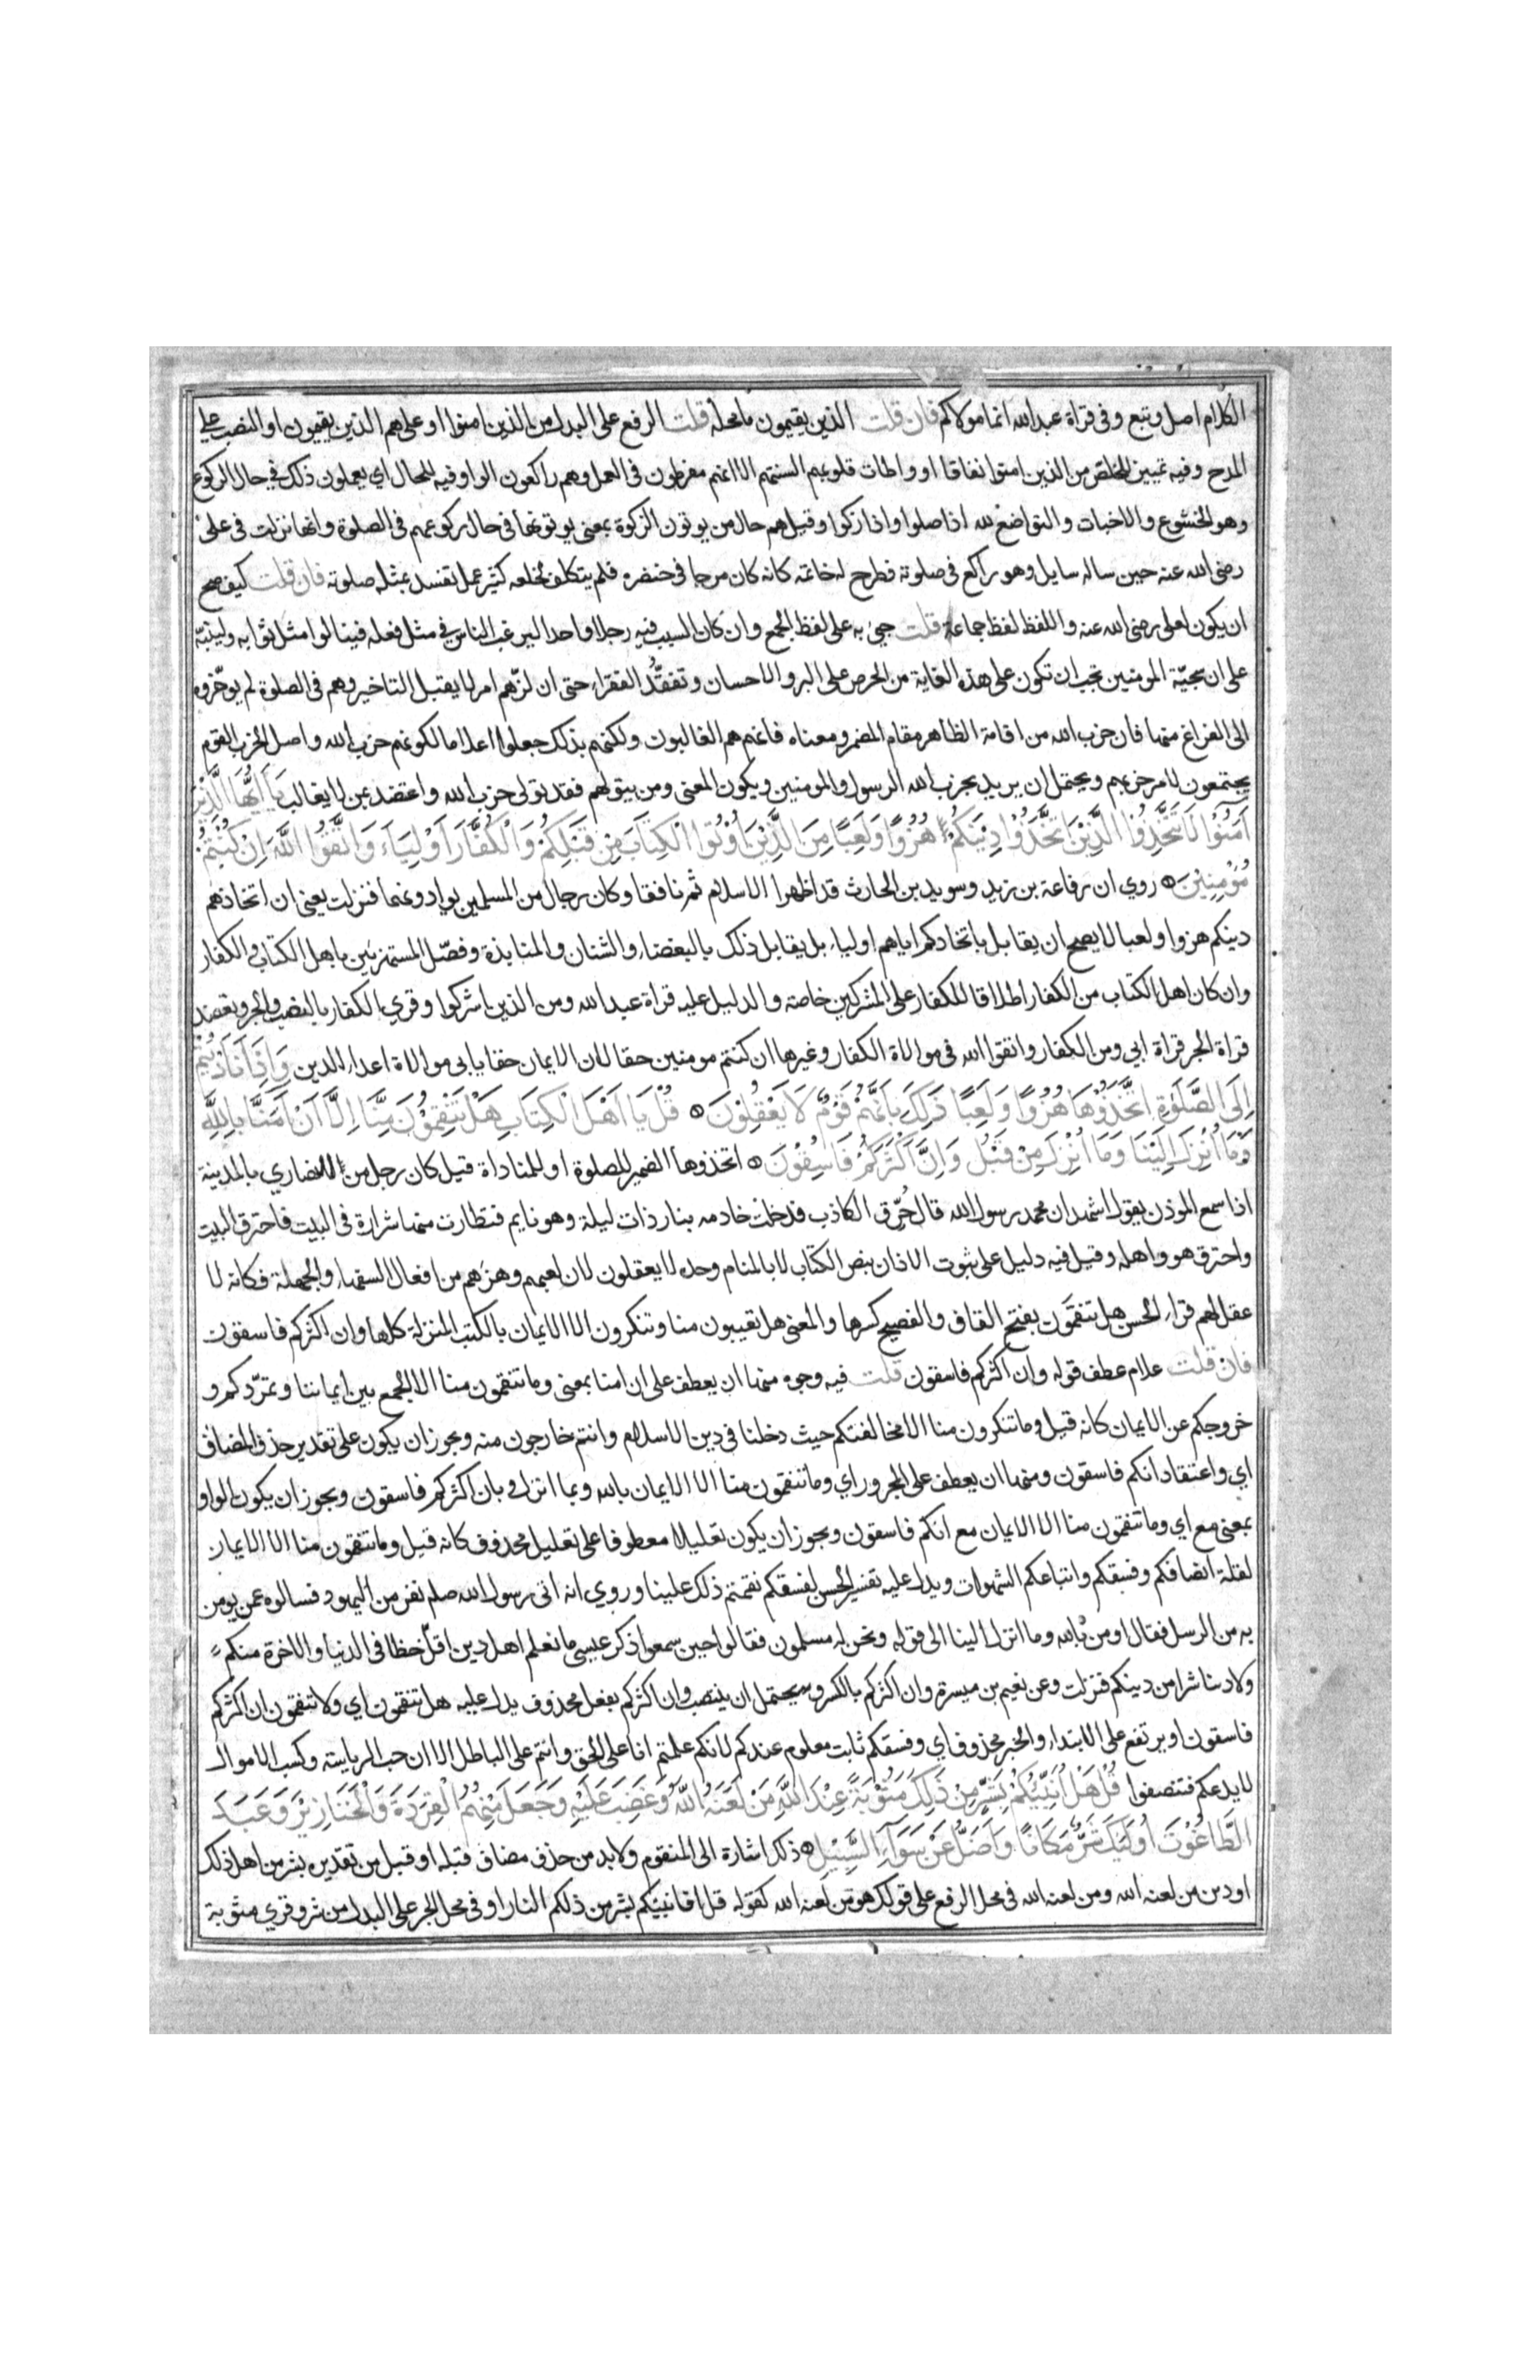 الكلام اصل وتبع وفي قراة عبد الله انما مولاكم فان قلت الذين يقيمون ما محله قلت الرفع على البدل من الذين امنوا او على هم الذين يقيمون او النصب على
المدح وفيه تمييز للخلص من الذين امنوا نفاقا او واطات قلوبهم السنتهم الا انهم مفرطون في العمل وهم راكعون الواو فيه للحال اي يعملون ذلك في حال الركوع
وهو الخشوع والاخبات والتواضع لله اذا صلوا واذا زكوا وقيل هم حال من يوتون الزكوة بمعنى يوتونها في حال ركوعهم في الصلوة وانها نزلت في على
رضي الله عنه حين ساله سايل وهو راكع في صلوته فطرح له خاتمه كانه كان مرجا في خنصره فلم يتكلف لخلعه كثير عمل تفسد بمثله صلوته فان قلت كيف صح
ان يكون لعلي رضي الله عنه واللفظ لفظ جماعة قلت جيء به على لفظ الجمع وان كان السبب فيه رجلا واحدا ليرغب الناس في مثل فعله فينالوا مثل ثوابه ولينبّه
على ان سجيّة المومنين يجب ان تكون على هذه الغاية من الحرص على البر والاحسان وتفقُّد الفقراء حتى ان لزّهم امر لا يقبل التاخير وهم في الصلوة لم يوخّروه
الى الفراغ منها فان حزب الله من اقامة الظاهر مقام المضمر ومعناه فانهم هم الغالبون ولكنهم بذلك جعلوا اعلاما لكونهم حزب الله واصل الحزب القوم
يجتمعون لامر حزبهم ويحتمل ان يريد بحزب الله الرسول والمومنين ويكون المعنى ومن يتولهم فقد تولى حزب الله واعتضد بمن لا يغالب يَا اَيُّهَا الَّذِيْنَ
اٰمَنُوْا لَا تَتَّخِذُوا الَّذِيْنَ اتَّخَذُوْا دِيْنَكُمْ هُزُوًا وَلَعِبًا مِنَ الَّذِيْنَ اُوْتُوا الْكِتَابَ مِنْ قَبْلِكُمْ وَالْكُفَّارَ اَوْلِيَاءَ وَاتَّقُوا اللّٰهَ اِنْ كُنْتُمْ
مُوْمِنِيْنَ روي ان رفاعة بن زيد وسويد بن الحارث قد اظهرا الاسلام ثم نافقا وكان رجال من المسلمين يوادونهما فنزلت يعني ان اتخاذهم
دينكم هزوا ولعبا لا يصح ان يقابل باتخاذكم اياهم اولياء بل يقابل ذلك بالبغضاء والشنان والمنابذة وفصّل المستهزئين باهل الكتاب والكفار
وان كان اهل الكتاب من الكفار اطلاقا للكفار على المشركين خاصة والدليل عليه قراة عبد الله ومن الذين اشركوا وقري الكفار بالنصب والجر وتعضد
قراة الجر قراة ابي ومن الكفار واتقوا الله في موالاة الكفار وغيرها ان كنتم مومنين حقا لان الايمان حقا يابى موالاة اعداء الدين وَاِذَا نَادَيْتُمْ
اِلَى الصَّلٰوةِ اتَّخَذُوْهَا هُزُوًا وَلَعِبًا ذٰلِكَ بِاَنَّهُمْ قَوْمٌ لَا يَعْقِلُوْنَ قُلْ يَا اَهْلَ الْكِتَابِ هَلْ تَنْقِمُوْنَ مِنَّا اِلَّا اَنْ اٰمَنَّا بِاللّٰهِ
وَمَا اُنْزِلَ اِلَيْنَا وَمَا اُنْزِلَ مِنْ قَبْلُ وَاِنَّ اَكْثَرَكُمْ فَاسِقُوْنَ اتخذوها الضمير للصلوة او للمناداة قيل كان رجل من النصاري بالمدينة
اذا سمع الموذن يقول اشهد ان محمد رسول الله قال حُرّق الكاذب فدخلت خادمه بنار ذات ليلة وهو نايم فتطارت منها شرارة في البيت فاحترق البيت
واحترق هو واهله وقيل فيه دليل على ثبوت الاذان بنص الكتاب لا بالمنام وحده لا يعقلون لان لعبهم وهزءهم من افعال السفهاء والجهلة فكانه لا
عقل لهم قراء الحسن هل تنقَمون بفتح القاف والفصيح كسرها والمعنى هل تعيبون منا وتنكرون الا الايمان بالكتب المنزلة كلها وان اكثركم فاسقون
فان قلت علام عطف قوله وان اكثركم فاسقون قلت فيه وجوه منها ان يعطف على ان امنا بمعنى وما تنقمون منا الا الجمع بين ايماننا وتمرّدكم و
خروجكم عن الايمان كانه قيل وما تنكرون منا الا مخالفتكم حيث دخلنا في دين الاسلام وانتم خارجون منه ويجوز ان يكون على تقدير حذف المضاف
اي واعتقاد انكم فاسقون ومنها ان يعطف على المجرور اي وما تنقمون منا الا الايمان بالله وبما انزل وبان اكثركم فاسقون ويجوز ان يكون الواو
بمعنى مع اي وما تنقمون منا الا الايمان مع انكم فاسقون ويجوز ان يكون تعليلا معطوفا على تعليل محذوف كانه قيل وما تنقمون منا الا الايمان
لقلة انصافكم وفسقكم واتباعكم الشهوات ويدل عليه تفسير الحسن لفسقكم نقمتم ذلك علينا وروي انه اتى رسول الله صلم نفر من اليهود فسالوه عمن يومن
به من الرسل فقال اومن بالله وما انزل الينا الى قوله ونحن له مسلمون فقالوا حين سمعوا ذكر عيسى ما نعلم اهل دين اقلّ حظا في الدنيا والاخرة منكم
ولا دينا شرا من دينكم فنزلت وعن نعيم بن ميسرة وان اكثركم بالكسر ويحتمل ان ينتصب وان اكثركم بفعل محذوف يدل عليه هل تنقمون اي ولا تنقمون ان اكثركم
فاسقون او يرتفع على الابتداء والخبر محذوف اي وفسقكم ثابت معلوم عندكم لانكم علمتم انا على الحق وانتم على الباطل الا ان حب الرياسة وكسب الاموال
لا يدعكم فتنصفوا قُلْ هَلْ اُنَبِّئُكُمْ بِشَرٍّ مِنْ ذٰلِكَ مَثُوْبَةً عِنْدَ اللّٰهِ مَنْ لَعَنَهُ اللّٰهُ وَغَضِبَ عَلَيْهِ وَجَعَلَ مِنْهُمُ الْقِرَدَةَ وَالْخَنَازِيْرَ وَعَبَدَ
الطَّاغُوْتَ اُولٰئِكَ شَرٌّ مَكَانًا وَاَضَلُّ عَنْ سَوَآءِ السَّبِيْلِ ذلك اشارة الى المنقوم ولابد من حذف مضاف قبله او قبل من تقديره بشر من اهل ذلك
او دين من لعنه الله ومن لعنه الله في محل الرفع على قولك هو من لعنه الله كقوله قل افانبيكم بشر من ذلكم النار او في محل الجر على البدل من شر وقري مثوبة